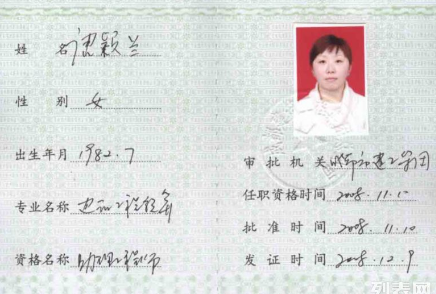 姓 名 唐颖兰
性 别 女
出生年月 1982.7
专业名称 建设工程预算
资格名称 助理工程师
审批机关 成都市建工集团
任职资格时间 2008.11.10
批准时间 2008.11.10
发证时间 2008.12.9
列表网